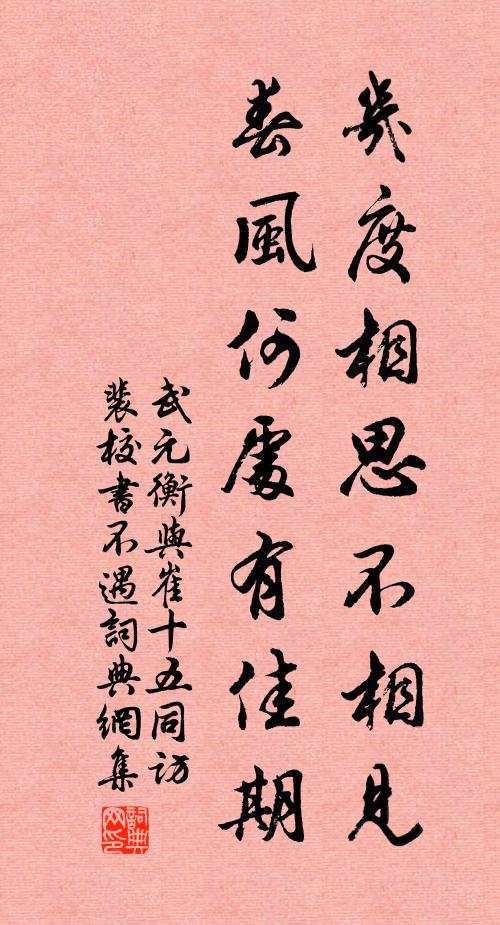 幾度相思不相見
春風何處有佳期
武元衡與崔十五同訪
裴校書不遇詞典網集
詞典
网印